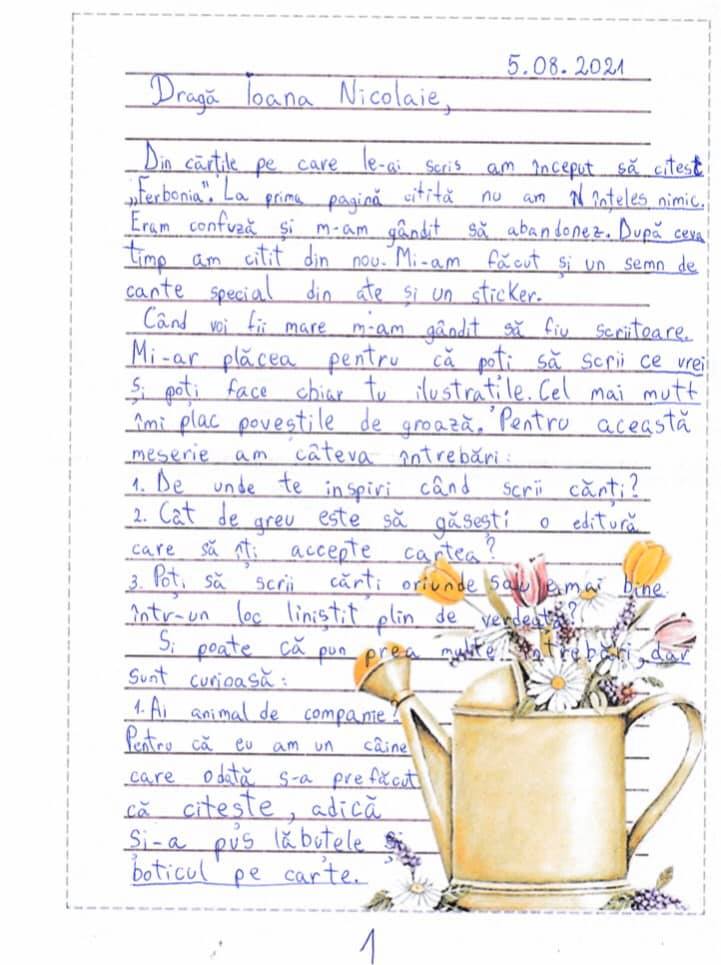 5.08.2021
Dragă Ioana Nicolaie,
Din cărțile pe care le-ai scris am început să citest
„Ferbonia". La prima pagină citită nu am N înțeles nimic.
Eram confuză și m-am gândit să abandonez. După ceva
timp am citit din nou. Mi-am făcut și un semn de
carte special din ate și un sticker.
Când voi fii mare m-am gândit să fiu scriitoare.
Mi-ar plăcea pentru că poti să scrii ce vrei
și poți face chiar tu ilustratile. Cel mai mutt
îmi plac poveștile de groază. Pentru această
meserie am câteva întrebări:
1. De unde te inspiri când scrii cărți?
2. Cât de greu este să găsești o editură
care să îți accepte cartea?
3. Poți să scrii cărți oriunde sau e mai bine
într-un loc liniștit plin de verdeață?
Și poate că pun prea multe întrebări, dar
sunt curioasă:
1. Ai animal de companie?
Pentru că eu am un câine
care odată s-a prefăcut
că citește, adică
și-a pus lăbuțele și
boticul pe carte.
1